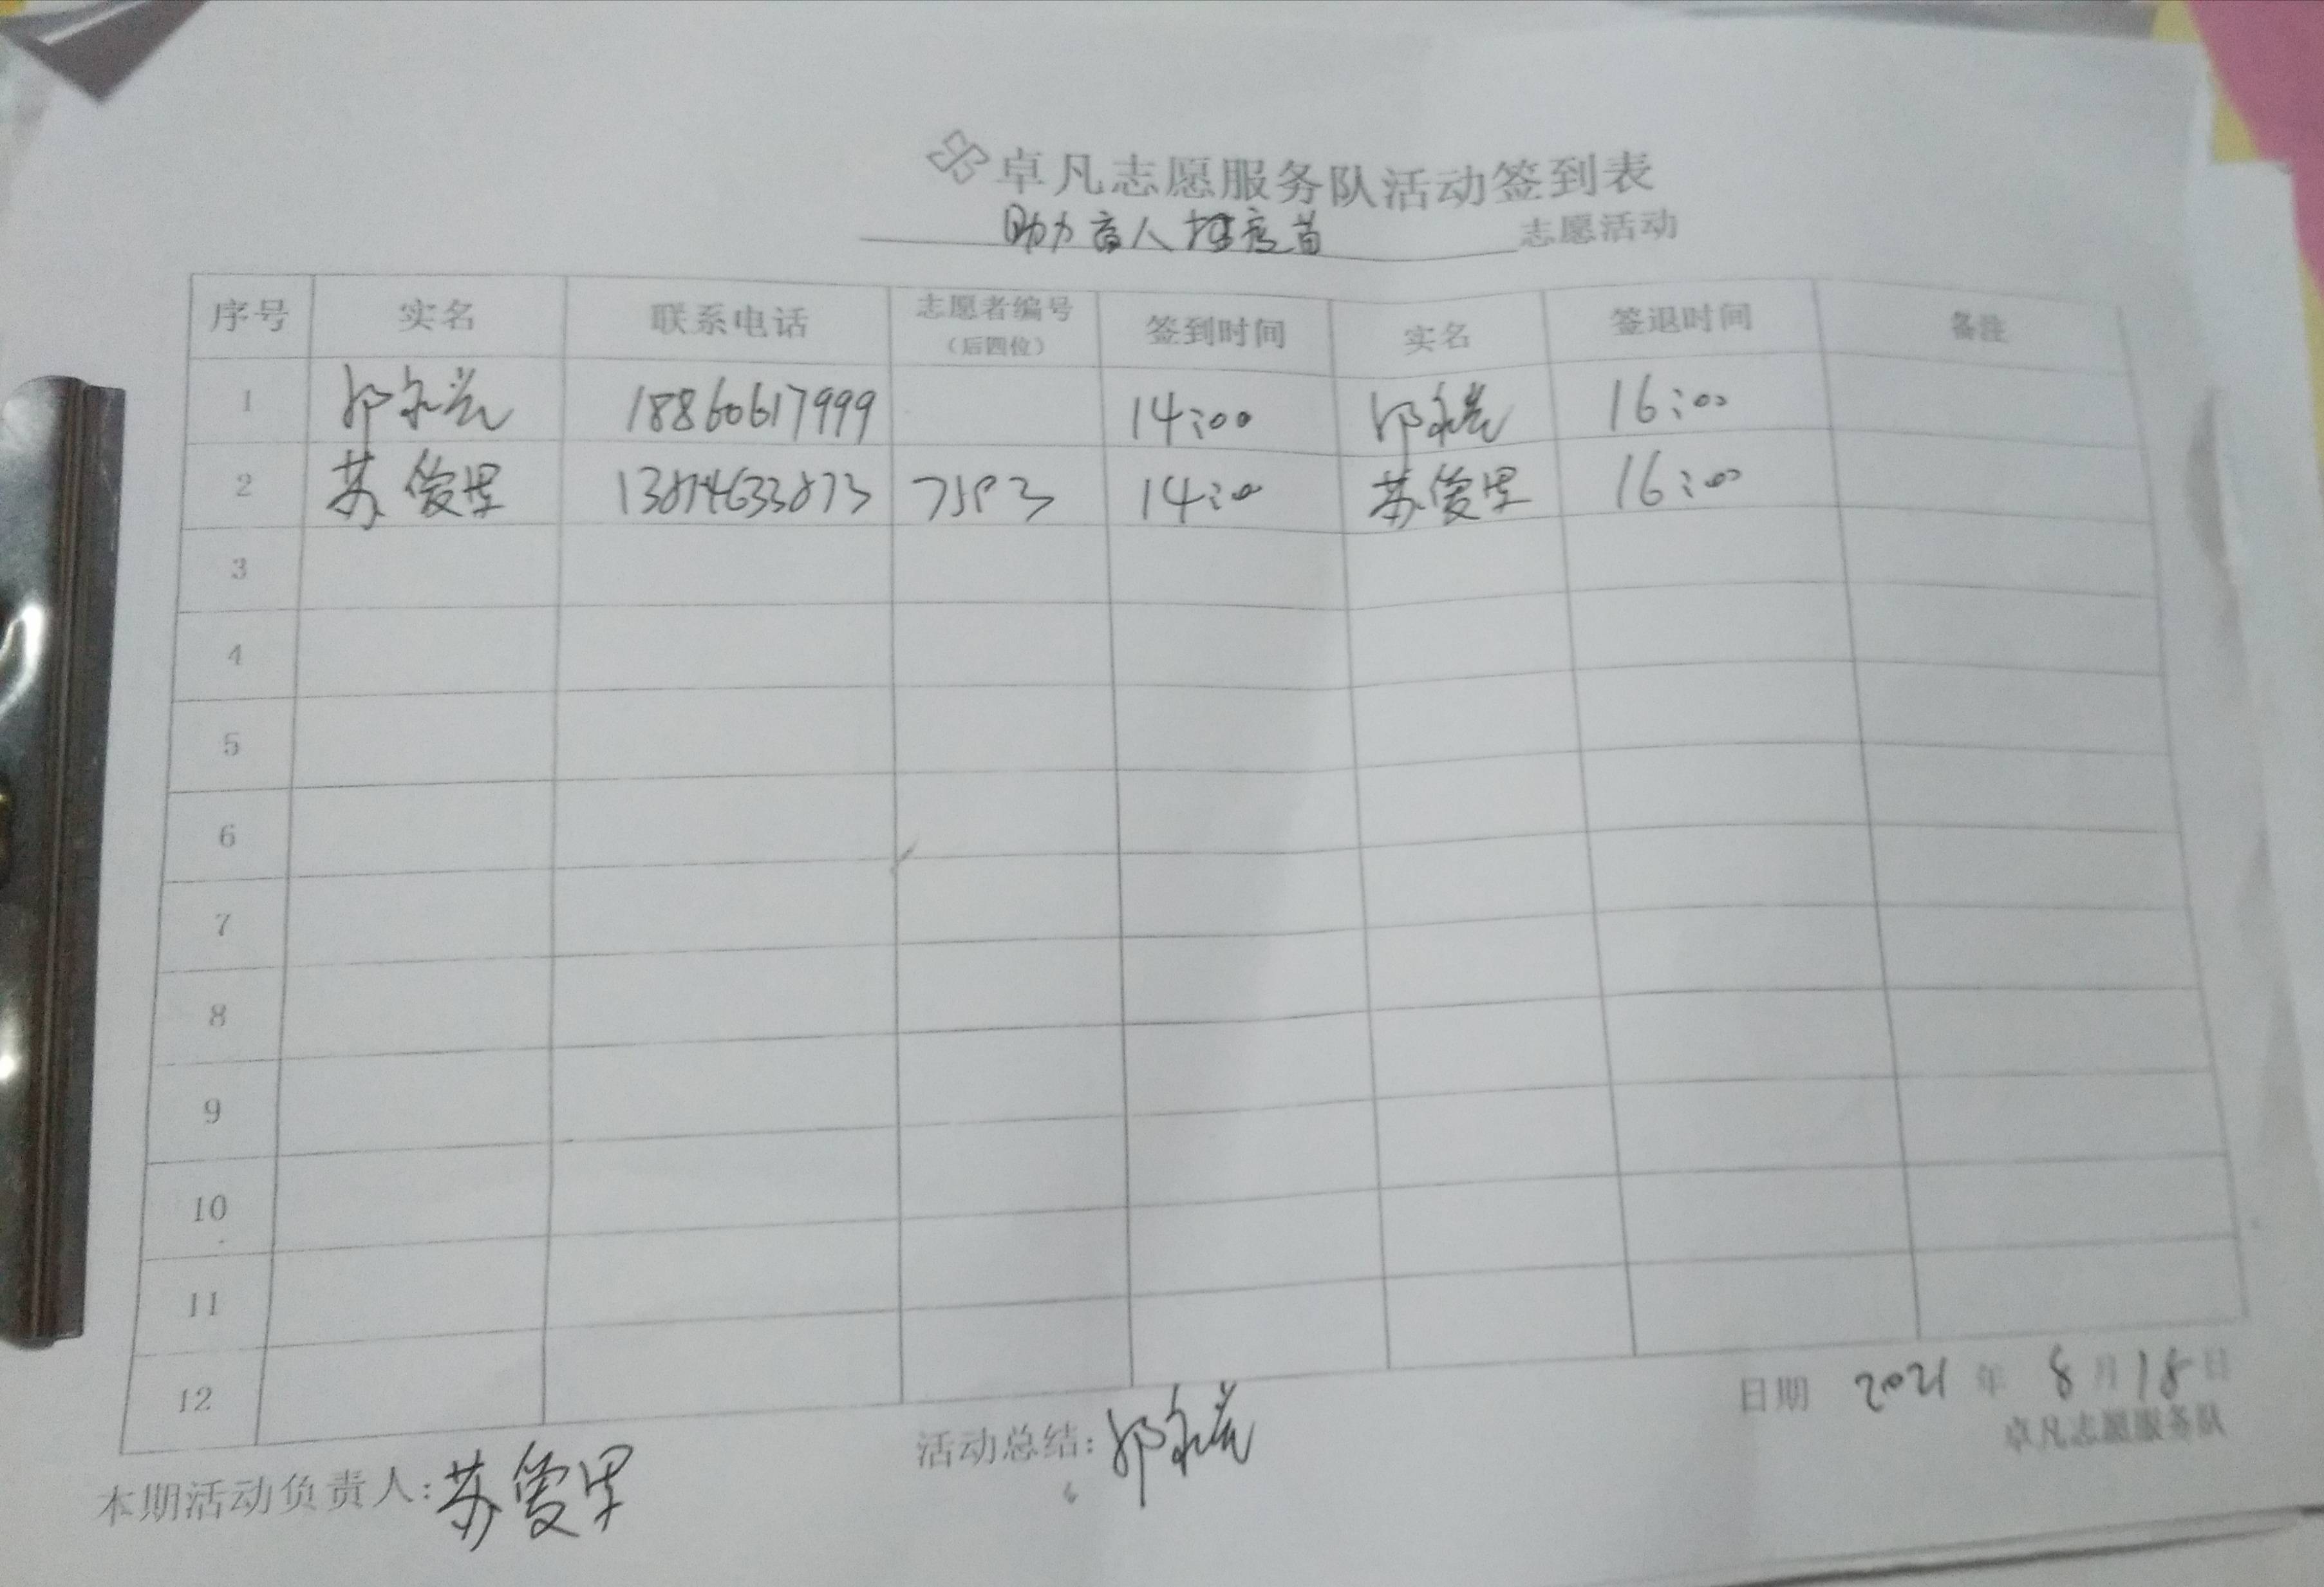 卓凡志愿服务队活动签到表
助力盲人接疫苗 志愿活动
序号 实名 联系电话 志愿者编号（后四位） 签到时间 实名 签退时间 备注
1 18860617999 14:00 16:00
2 苏 14:00 苏 16:00
3
4
5
6
7
8
9
10
11
12
日期 2021 年 8 月 18 日
卓凡志愿服务队
活动总结:
本期活动负责人: 苏